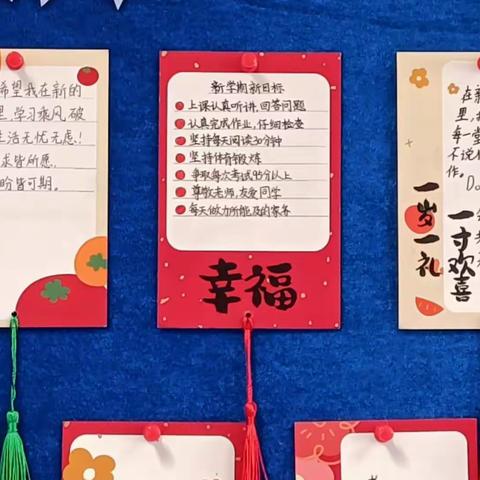 希望我在新的
里,学习乘风破
生活无忧无虑!
求皆所愿,
盼皆可期。
新学期新目标
上课认真听讲,回答问题
认真完成作业,仔细检查
坚持每天阅读30分钟
坚持体育锻炼
争取每次考试95分以上
尊敬老师,友爱同学
每天做力所能及的家务
幸福
在新
里,
每一堂
不说
作。
一岁一礼
一寸欢喜